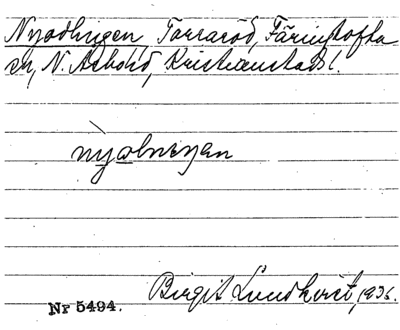 Nyodlingen, Torraröd, Färingtofta
sn, N. Åsbohd, Kristianstads l.
nyolnεŋen
Birgit Lundkvist, 1936.
Nr 5494.